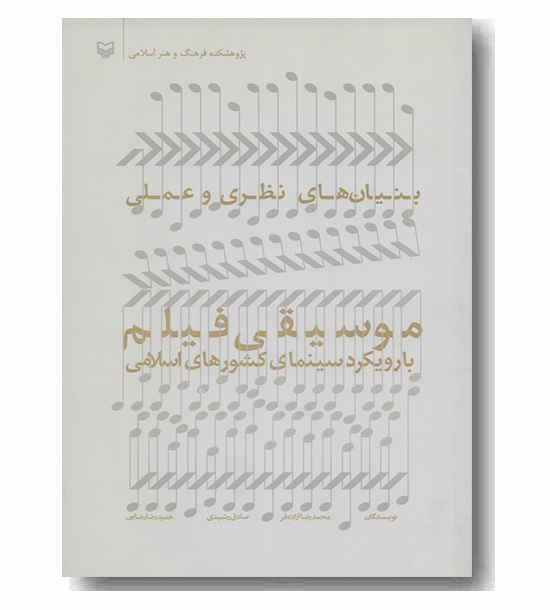 پژوهشکده فرهنگ و هنر اسلامی
بنیان‌های نظری و عملی
موسیقی فیلم
با رویکرد سینمای کشورهای اسلامی
نویسندگان محمدرضا آزادفر صادق رشیدی